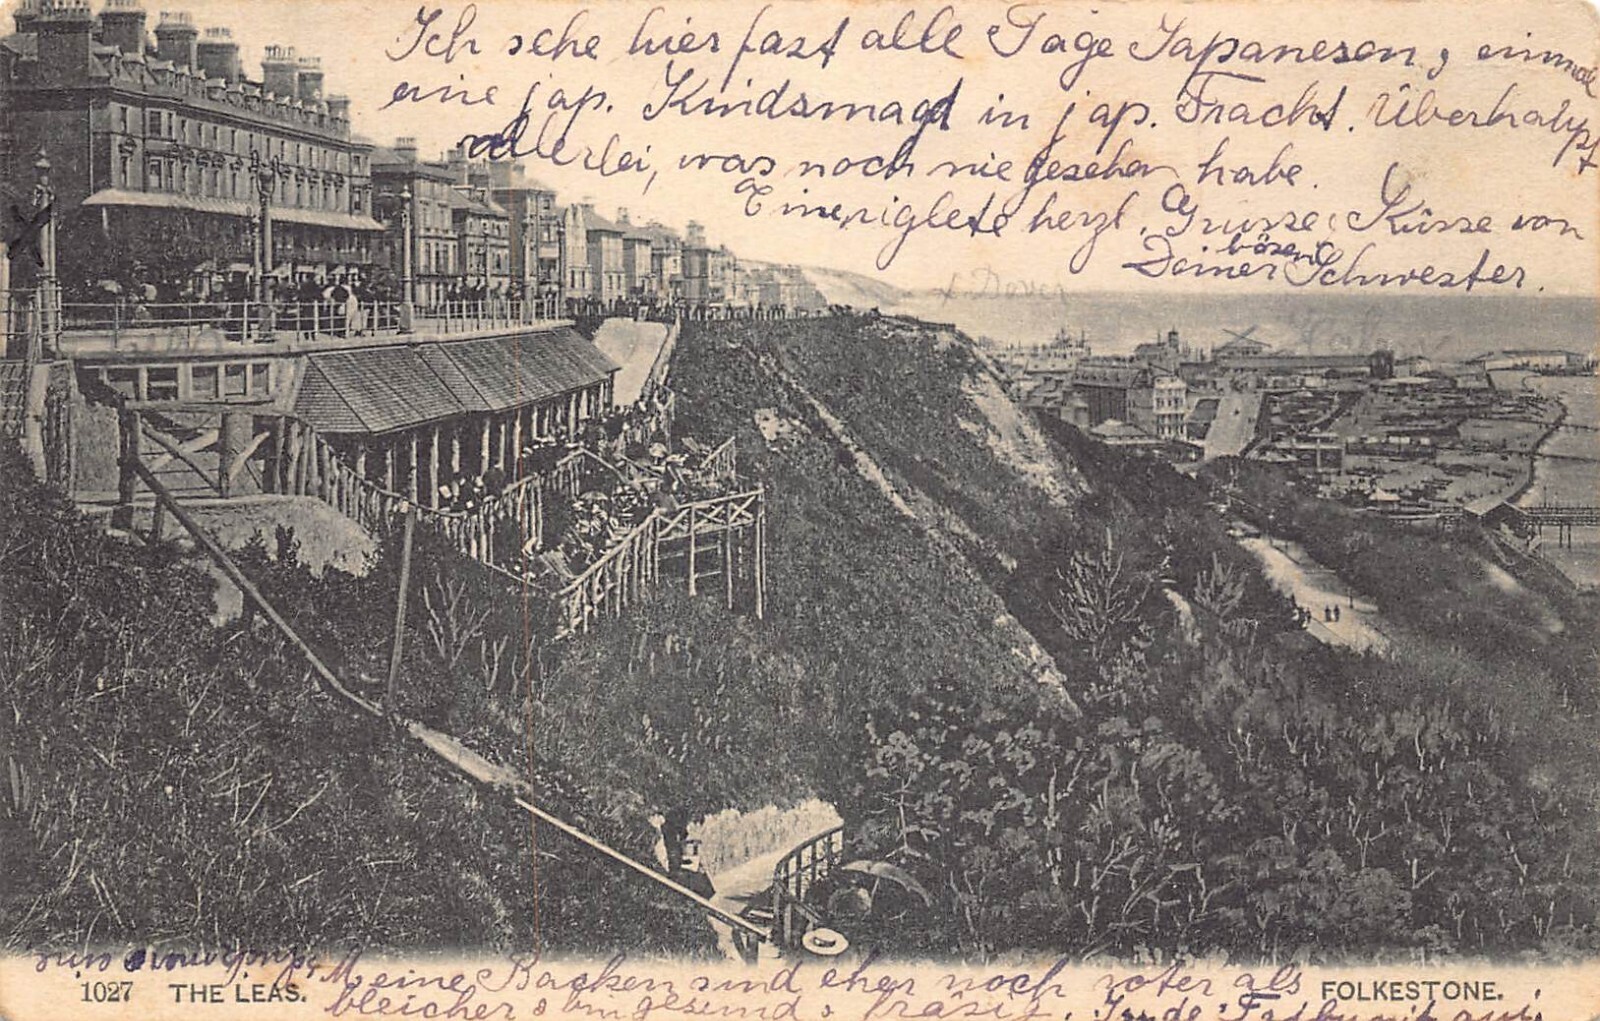 Ich sehe hier fast alle Tage Japanesen, einmal
eine jap. Kindsmagd in jap. Tracht. Überhaupt
allerlei, was noch nie gesehen habe.
herzl. Grüsse, Küsse von
Deiner bösen Schwester.
x Dover
Meine Backen sind eher noch röter als
bleicher & bin gesund &
1027 THE LEAS.
FOLKESTONE.